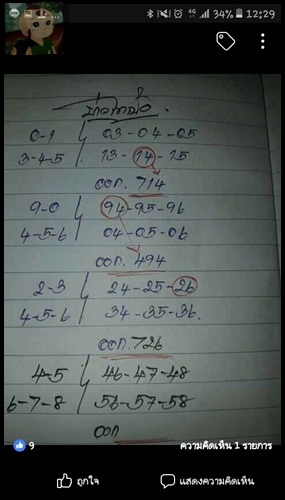 4G 34% 12:29
0-1 03-04-05
3-4-5 13-14-15
ออก. 714
9-0 94-95-96
4-5-6 04-05-06
ออก. 494
2-3 24-25-26
4-5-6 34-35-36.
ออก. 726
4-5 46-47-48
6-7-8 56-57-58
ออก
9 ความคิดเห็น 1 รายการ
ถูกใจ แสดงความคิดเห็น